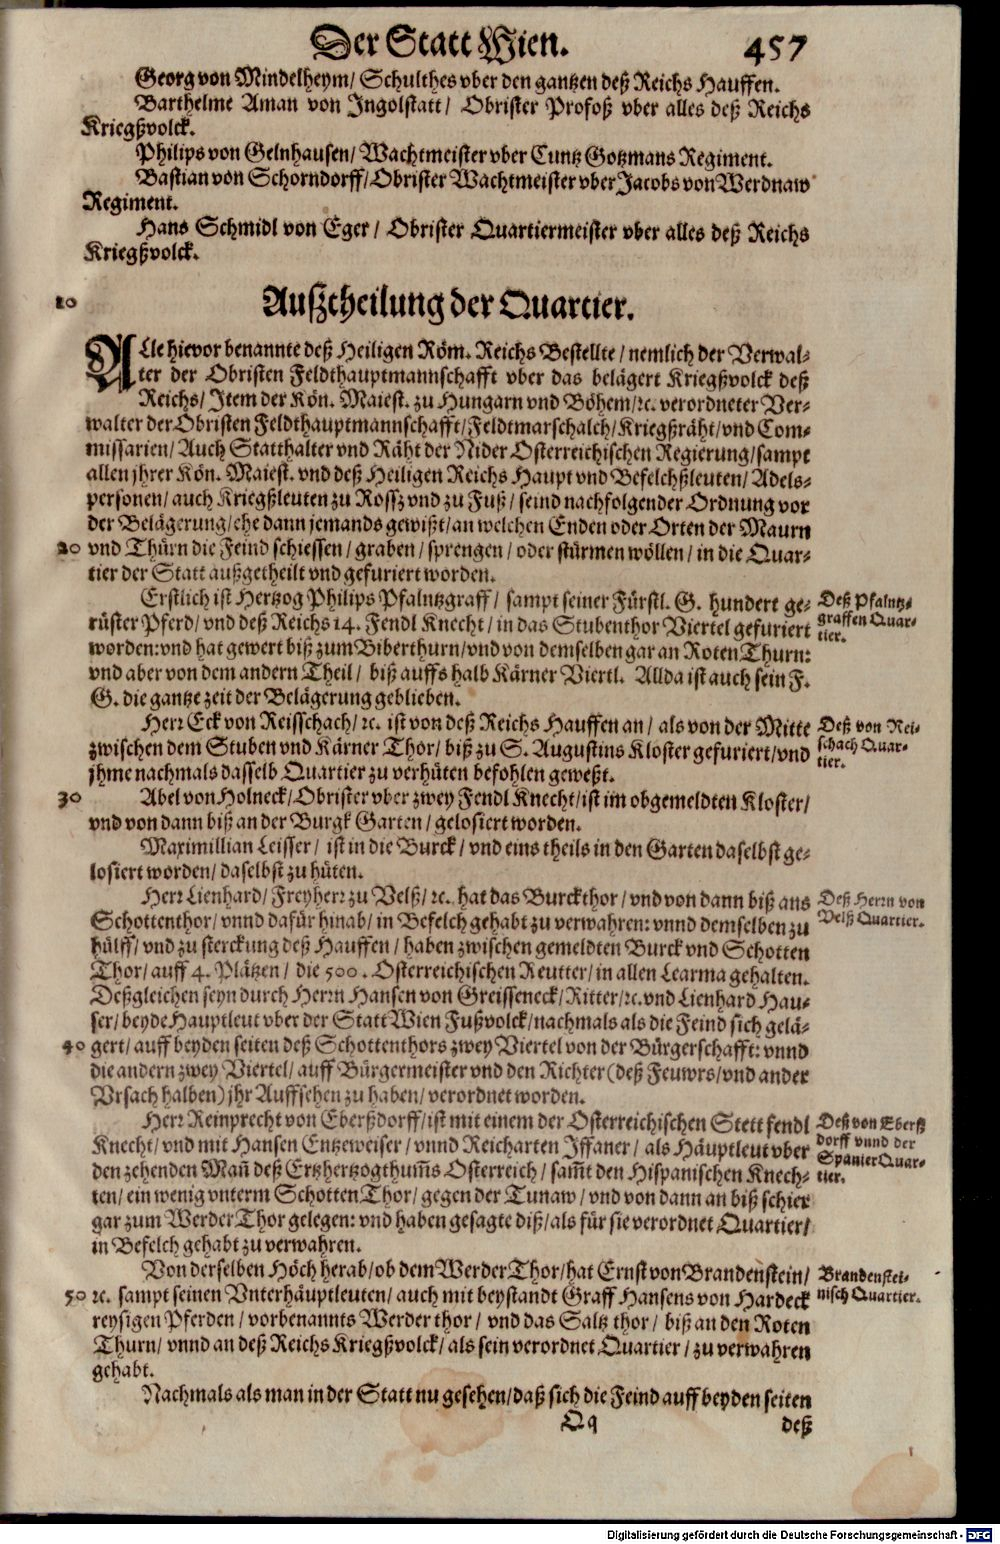 Der Statt Wien. 457
Georg von Mindelheym/ Schulthes vber den gantzen deß Reichs Hauffen.
Barthelme Aman von Ingolstatt/ Obrister Profoß vber alles deß Reichs
Kriegßvolck.
Philips von Gelnhausen/ Wachtmeister vber Cuntz Gotzmans Regiment.
Bastian von Schorndorff/ Obrister Wachtmeister vber Jacobs von Werdnaw
Regiment.
Hans Schmidl von Eger/ Obrister Quartiermeister vber alles deß Reichs
Kriegßvolck.
10 Außtheilung der Quartier.
ALle hievor benannte deß Heiligen Röm. Reichs Bestellte/ nemlich der Verwal-
ter der Obristen Feldthauptmannschafft vber das belägert Kriegßvolck deß
Reichs/ Item der Kön. Maiest. zu Hungarn vnd Böhem/ ꝛc. verordneter Ver-
walter der Obristen Feldthauptmannschafft/ Feldtmarschalch/ Kriegßräht/ vnd Com-
missarien/ Auch Statthalter vnd Räht der Nider Osterreichischen Regierung/ sampt
allen jhrer Kön. Maiest. vnd deß Heiligen Reichs Haupt vnd Befelchßleuten/ Adels-
personen/ auch Kriegßleuten zu Rossz vnd zu Fuß/ seind nachfolgender Ordnung vor
der Belägerung/ ehe dann jemands gewißt/ an welchen Enden oder Orten der Maurn
20 vnd Thürn die Feind schiessen/ graben/ sprengen/ oder stürmen wöllen/ in die Quar-
tier der Statt außgetheilt vnd gefuriert worden.
Erstlich ist Hertzog Philips Pfalntzgraff/ sampt seiner Fürstl. G. hundert ge-
rüster Pferd/ vnd deß Reichs 14. Fendl Knecht/ in das Stubenthor Viertel gefuriert
worden: vnd hat gewert biß zum Biberthurn/ vnd von demselben gar an Roten Thurn:
vnd aber von dem andern Theil/ biß auffs halb Kärner Viertl. Allda ist auch sein F.
G. die gantze zeit der Belägerung geblieben.
Deß Pfalntz-
graffen Quar-
tier.
Herr Eck von Reisschach/ ꝛc. ist von deß Reichs Hauffen an/ als von der Mitte
zwischen dem Stuben vnd Kärner Thor/ biß zu S. Augustins Kloster gefuriert/ vnd
jhme nachmals dasselb Quartier zu verhüten befohlen geweßt.
Deß von Rei-
schach Quar-
tier.
30 Abel von Holneck/ Obrister vber zwey Fendl Knecht/ ist im obgemeldten Kloster/
vnd von dann biß an der Burgk Garten/ gelosiert worden.
Maximillian Leisser/ ist in die Burck/ vnd eins theils in den Garten daselbst ge-
losiert worden/ daselbst zu hüten.
Herr Lienhard/ Freyherr zu Velß/ ꝛc. hat das Burckthor/ vnd von dann biß ans
Schottenthor/ vnnd dafür hinab/ in Befelch gehabt zu verwahren: vnnd demselben zu
hülff/ vnd zu sterckung deß Hauffen/ haben zwischen gemeldten Burck vnd Schotten
Thor/ auff 4. Plätzen/ die 500. Osterreichischen Reutter/ in allen Learma gehalten.
Deßgleichen seyn durch Herrn Hansen von Greisseneck/ Ritter/ ꝛc. vnd Lienhard Hau-
ser/ beyde Hauptleut vber der Statt Wien Fußvolck/ nachmals als die Feind sich gelä-
40 gert/ auff beyden seiten deß Schottenthors zwey Viertel von der Bürgerschafft: vnnd
die andern zwey Viertel/ auff Bürgermeister vnd den Richter (deß Feuwrs/ vnd ander
Vrsach halben) jhr Auffsehen zu haben/ verordnet worden.
Deß Herrn von
Velß Quartier.
Herr Reinprecht von Eberßdorff/ ist mit einem der Osterreichischen Stett fendl
Knecht/ vnd mit Hansen Entzeweiser/ vnnd Reicharten Iffaner/ als Häuptleut vber
den zehenden Mañ deß Ertzhertzogthum̃s Osterreich/ sam̃t den Hispanischen Knech-
ten/ ein wenig vnterm Schotten Thor/ gegen der Tunaw/ vnd von dann an biß schier
gar zum Werder Thor gelegen: vnd haben gesagte diß/ als für sie verordnet Quartier/
in Befelch gehabt zu verwahren.
Deß von Eberß
dorff vnnd der
Spanier Quar-
tier.
Von derselben Höch herab/ ob dem Werder Thor/ hat Ernst von Brandenstein/
50 ꝛc. sampt seinen Vnterhäuptleuten/ auch mit beystandt Graff Hansens von Hardeck
reysigen Pferden/ vorbenannts Werder thor/ vnd das Saltz thor/ biß an den Roten
Thurn/ vnnd an deß Reichs Kriegßvolck/ als sein verordnet Quartier/ zu verwahren
gehabt.
Brandenstei-
nisch Quartier.
Nachmals als man in der Statt nu gesehen/ daß sich die Feind auff beyden seiten
Qq deß
Digitalisierung gefördert durch die Deutsche Forschungsgemeinschaft - DFG